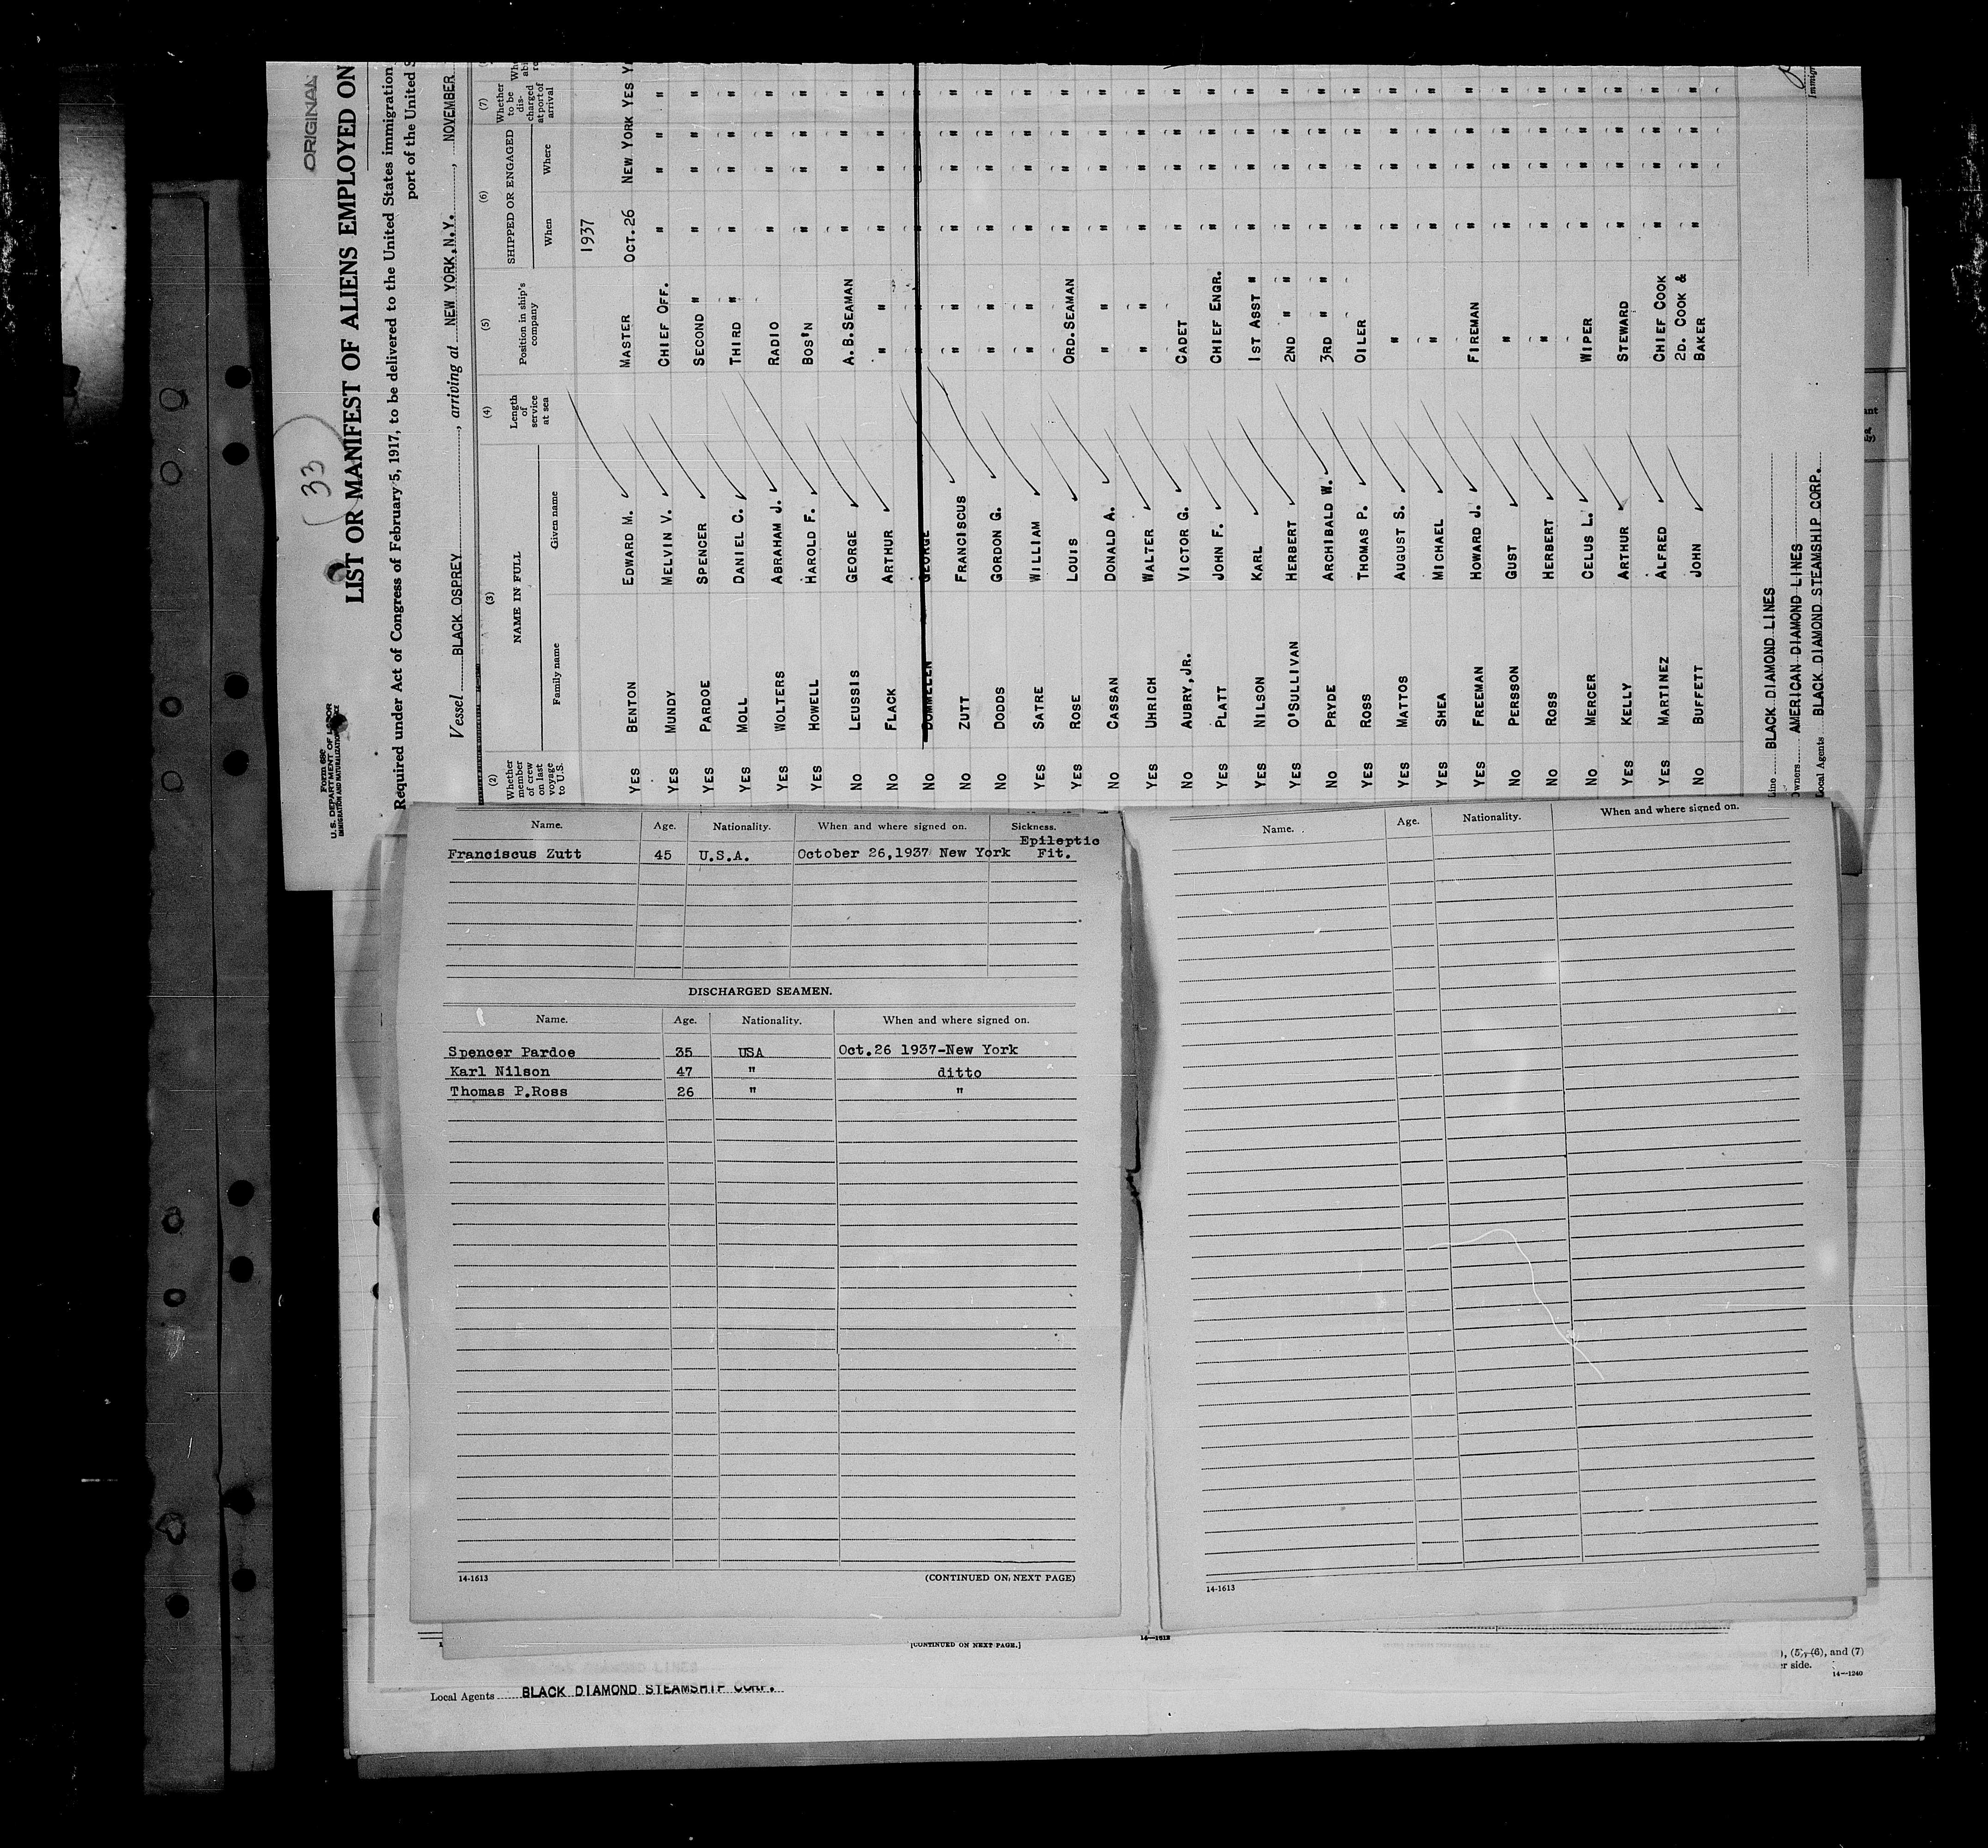 ORIGINAL
(33)
Form 689
U.S. DEPARTMENT OF LABOR
IMMIGRATION AND NATURALIZATION
LIST OR MANIFEST OF ALIENS EMPLOYED ON
Required under Act of Congress of February 5, 1917, to be delivered to the United States immigration
port of the United S
Vessel BLACK OSPREY, arriving at NEW YORK, N.Y., NOVEMBER
(2) (3) (4) (5) (6) (7)
Whether member of crew on last voyage to U.S. NAME IN FULL Family name Given name Length of service at sea Position in ship's company SHIPPED OR ENGAGED When Where Whether to be discharged at port of arrival
1937
YES BENTON EDWARD M. MASTER OCT. 26 NEW YORK YES
YES MUNDY MELVIN V. CHIEF OFF. " " " "
YES PARDOE SPENCER SECOND " " " " "
YES MOLL DANIEL C. THIRD " " " " "
YES WOLTERS ABRAHAM J. RADIO " " " "
YES HOWELL HAROLD F. BOS'N " " " "
NO LEUSSIS GEORGE A.B.SEAMAN " " " "
NO FLACK ARTHUR " " " " "
NO GEORGE " " " " "
NO ZUTT FRANCISCUS " " " " "
NO DODDS GORDON G. " " " " "
YES SATRE WILLIAM " " " " "
YES ROSE LOUIS ORD.SEAMAN " " " "
NO CASSAN DONALD A. " " " " "
YES UHRICH WALTER " " " " "
NO AUBRY, JR. VICTOR G. CADET " " " "
YES PLATT JOHN F. CHIEF ENGR. " " " "
YES NILSON KARL 1ST ASST " " " " "
YES O'SULLIVAN HERBERT 2ND " " " " " "
NO PRYDE ARCHIBALD W. 3RD " " " " " "
YES ROSS THOMAS P. OILER " " " "
YES MATTOS AUGUST S. " " " " "
YES SHEA MICHAEL " " " " "
YES FREEMAN HOWARD J. FIREMAN " " " "
NO PERSSON GUST " " " " "
NO ROSS HERBERT " " " " "
NO MERCER CELUS L. WIPER " " " "
YES KELLY ARTHUR STEWARD " " " "
YES MARTINEZ ALFRED CHIEF COOK " " " "
NO BUFFETT JOHN 2D. COOK & BAKER " " " "
Line BLACK DIAMOND LINES
Owners AMERICAN DIAMOND LINES
Local Agents BLACK DIAMOND STEAMSHIP CORP.
Name. Age. Nationality. When and where signed on. Sickness.
Franciscus Zutt 45 U.S.A. October 26,1937 New York Epileptic Fit.
DISCHARGED SEAMEN.
Name. Age. Nationality. When and where signed on.
Spencer Pardoe 35 USA Oct.26 1937-New York
Karl Nilson 47 " ditto
Thomas P.Ross 26 " "
14-1613 (CONTINUED ON NEXT PAGE)
Name. Age. Nationality. When and where signed on.
14-1613
[CONTINUED ON NEXT PAGE.]
14—1613
), (5), (6), and (7)
er side.
14—1240
Local Agents BLACK DIAMOND STEAMSHIP CORP.